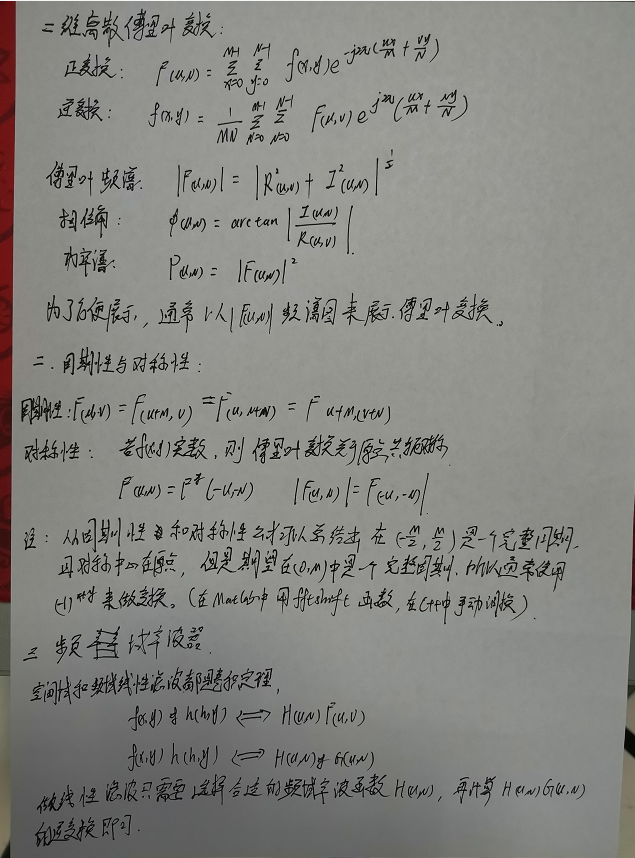 二维离散傅里叶变换:
正变换: F(u,v) = Σ_{x=0}^{M-1} Σ_{y=0}^{N-1} f(x,y) e^{-j2π(ux/M + vy/N)}
逆变换: f(x,y) = 1/MN Σ_{u=0}^{M-1} Σ_{v=0}^{N-1} F(u,v) e^{j2π(ux/M + vy/N)}
傅里叶频谱: |F(u,v)| = |R²(u,v) + I²(u,v)|^{1/2}
相位角: φ(u,v) = arctan |I(u,v)/R(u,v)|
功率谱: P(u,v) = |F(u,v)|²
为了方便展示, 通常以|F(u,v)| 频谱图来展示傅里叶变换。
二. 周期性与对称性:
周期性: F(u,v) = F(u+M, v) = F(u, v+N) = F u+M,(v+N)
对称性: 若f(x,y)实数, 则傅里叶变换关于原点共轭对称
F(u,v) = F*(-u,-v) |F(u,v)| = F(-u,-v)|
注: 从周期性和对称性公式可以总结出 在(-M/2, M/2)是一个完整周期,
且对称中心在原点, 但是期望在(0,M)中是一个完整周期, 所以通常使用
(-1)^{x+y} 来做变换。(在Matlab中用fftshift 函数, 在C++中手动调换)
三 频域率波器
空间域和频域线性滤波都遵循卷积定理,
f(x,y) * h(h,y) ⟺ H(u,v) F(u,v)
f(x,y) h(h,y) ⟺ H(u,v) * G(u,v)
做线性滤波只需要选择合适的频域率波函数 H(u,v), 再计算 H(u,v)G(u,v)
的逆变换即可.